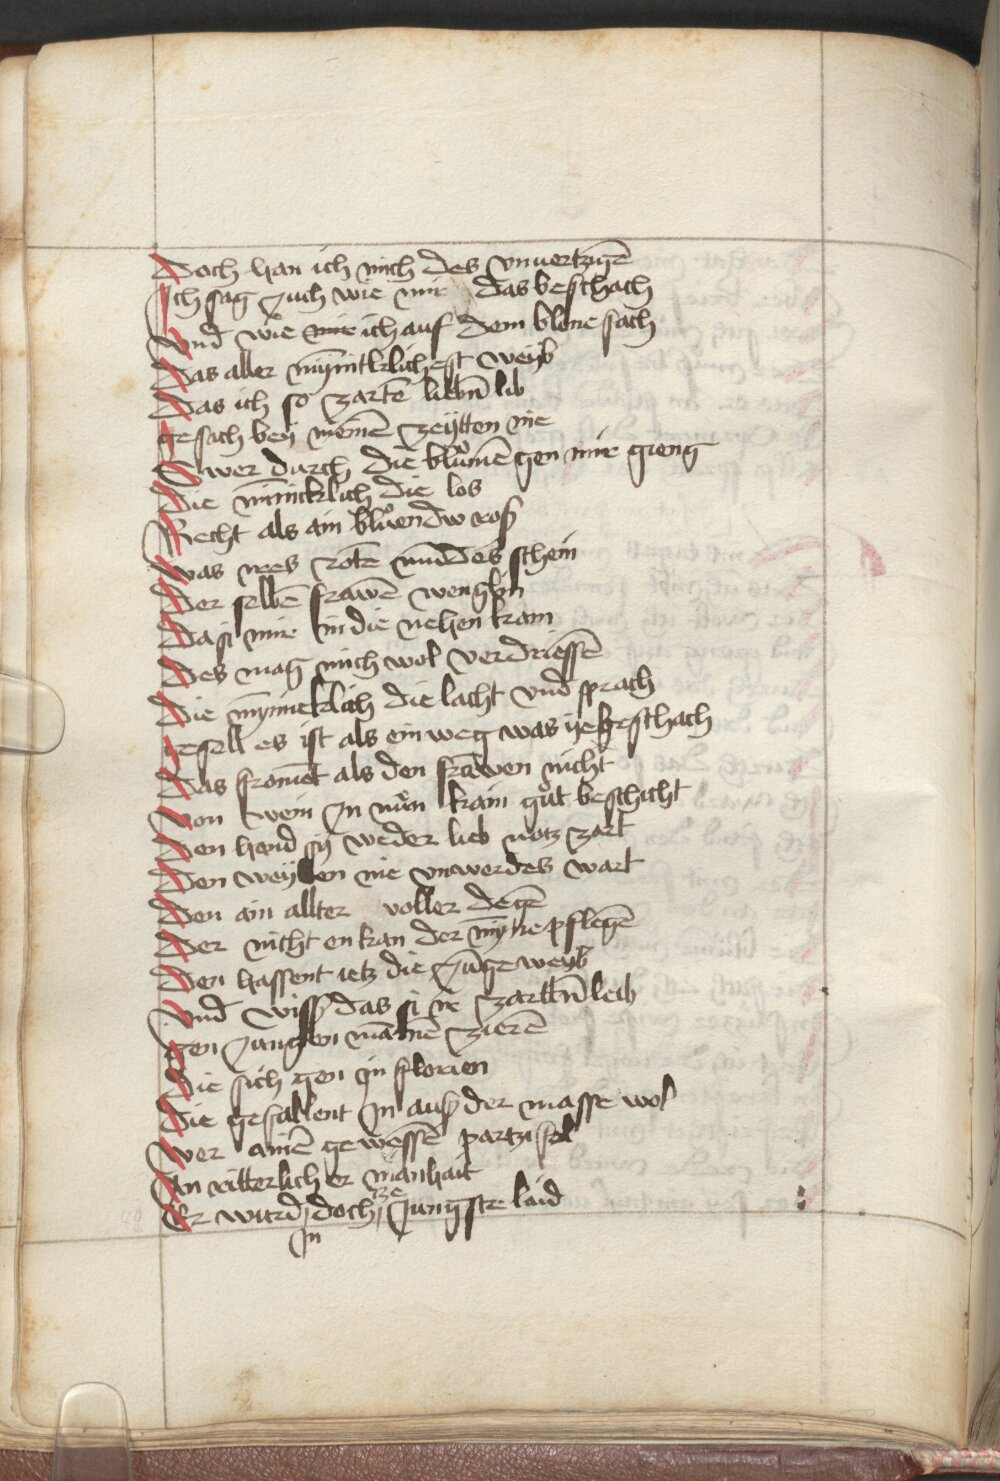 Doch han ich mich des vnuertzigē
Ich sag Juch wie mir das beschach
Vnd wie mir ich auf dem blone sach
Das aller mȳnicklichest weyb
Das ich so zartē liebn̄ lib
gesach bey meinē zeytten nie
Swer durch die blůmē gen mir gieng
Die mīnicklich die los
Recht als ain blůendw roß
Was ires rotē mūdes schein
Der selbē frawē wenglin
Da si mir in die nehen kam
Des mag mich wol verdriessē
Die mȳnneklich die lacht vnd sprach
gesell es ist als ein weg was ye geschach
Das fromet als den frawen nicht
Von wem In nůn kain gůt beschicht
Den hend sy weder lieb notz zart
Den weyben nie vnwerdes wart
Den ain allter voller degē
Der nicht en kan der mȳne pflegē
Den hassent ietz die Jūge weyb
Vnd wiss das si ir zarttn̄ leib
gen Jungen mānē zierē
Die sich gen In florien
Die gefallent In auß der masse wol
Wer ainē gewessē partzifal
An ritterlicher manhait
Er wurd doch ze Jungste laid
In